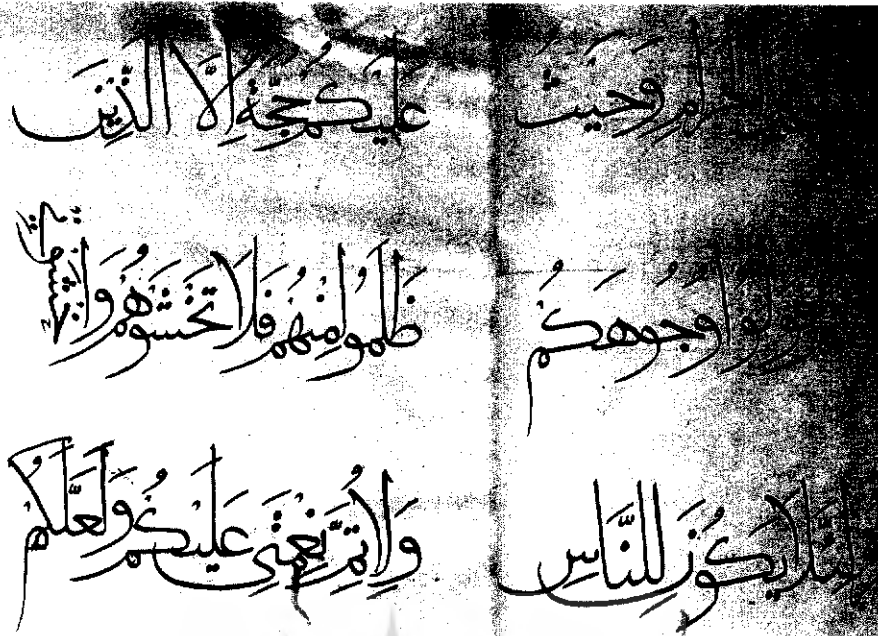 الحرام وحيث
فولوا وجوهكم
لئلا يكون للناس
عليكم حجة الا الذين
ظلموا منهم فلا تخشوهم واخشوني
ولاتم نعمتي عليكم ولعلكم